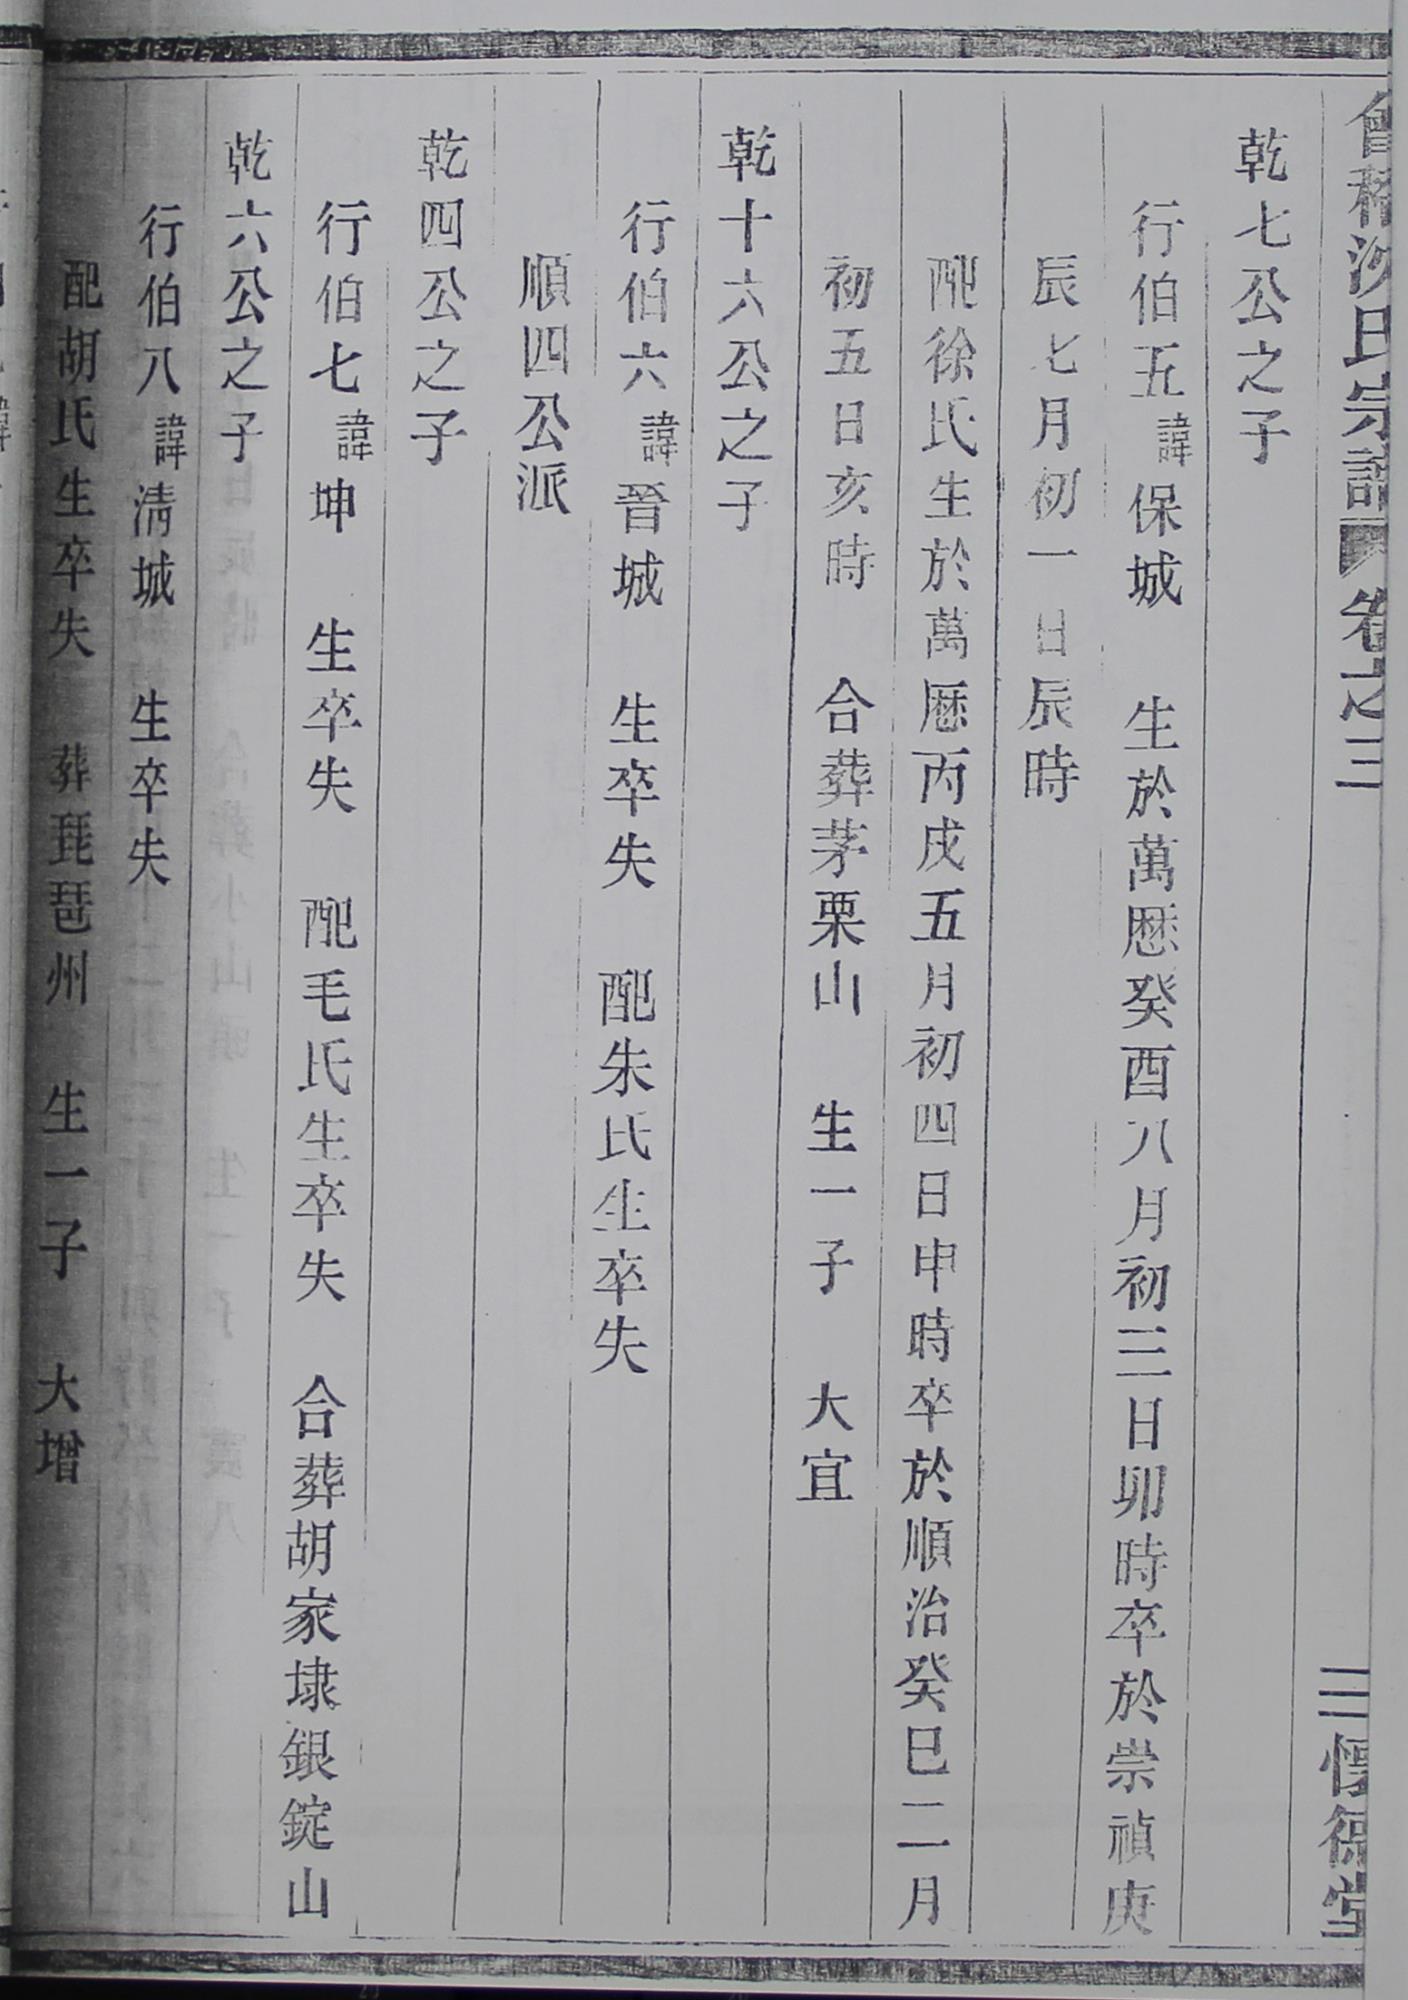 會稽沈氏宗譜 卷之三 二 懷德堂
乾七公之子
行伯五諱保城 生於萬曆癸酉八月初三日卯時卒於崇禎庚
辰七月初一日辰時
配徐氏生於萬曆丙戌五月初四日申時卒於順治癸巳二月
初五日亥時 合葬茅栗山 生一子 大宜
乾十六公之子
行伯六諱晉城 生卒失 配朱氏生卒失
順四公派
乾四公之子
行伯七諱坤 生卒失 配毛氏生卒失 合葬胡家埭銀錠山
乾六公之子
行伯八諱淸城 生卒失
配胡氏生卒失 葬琵琶州 生一子 大增